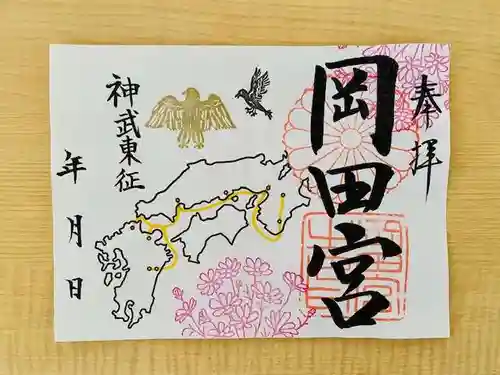 奉拝
岡田宮
神武東征
年 月 日